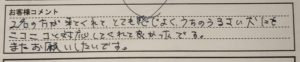 お客様コメント
2名の方が来てくれて、とても感じよく、うちのうるさい犬にも
ニコニコと対応してくれて良かったです。
またお願いしたいです。